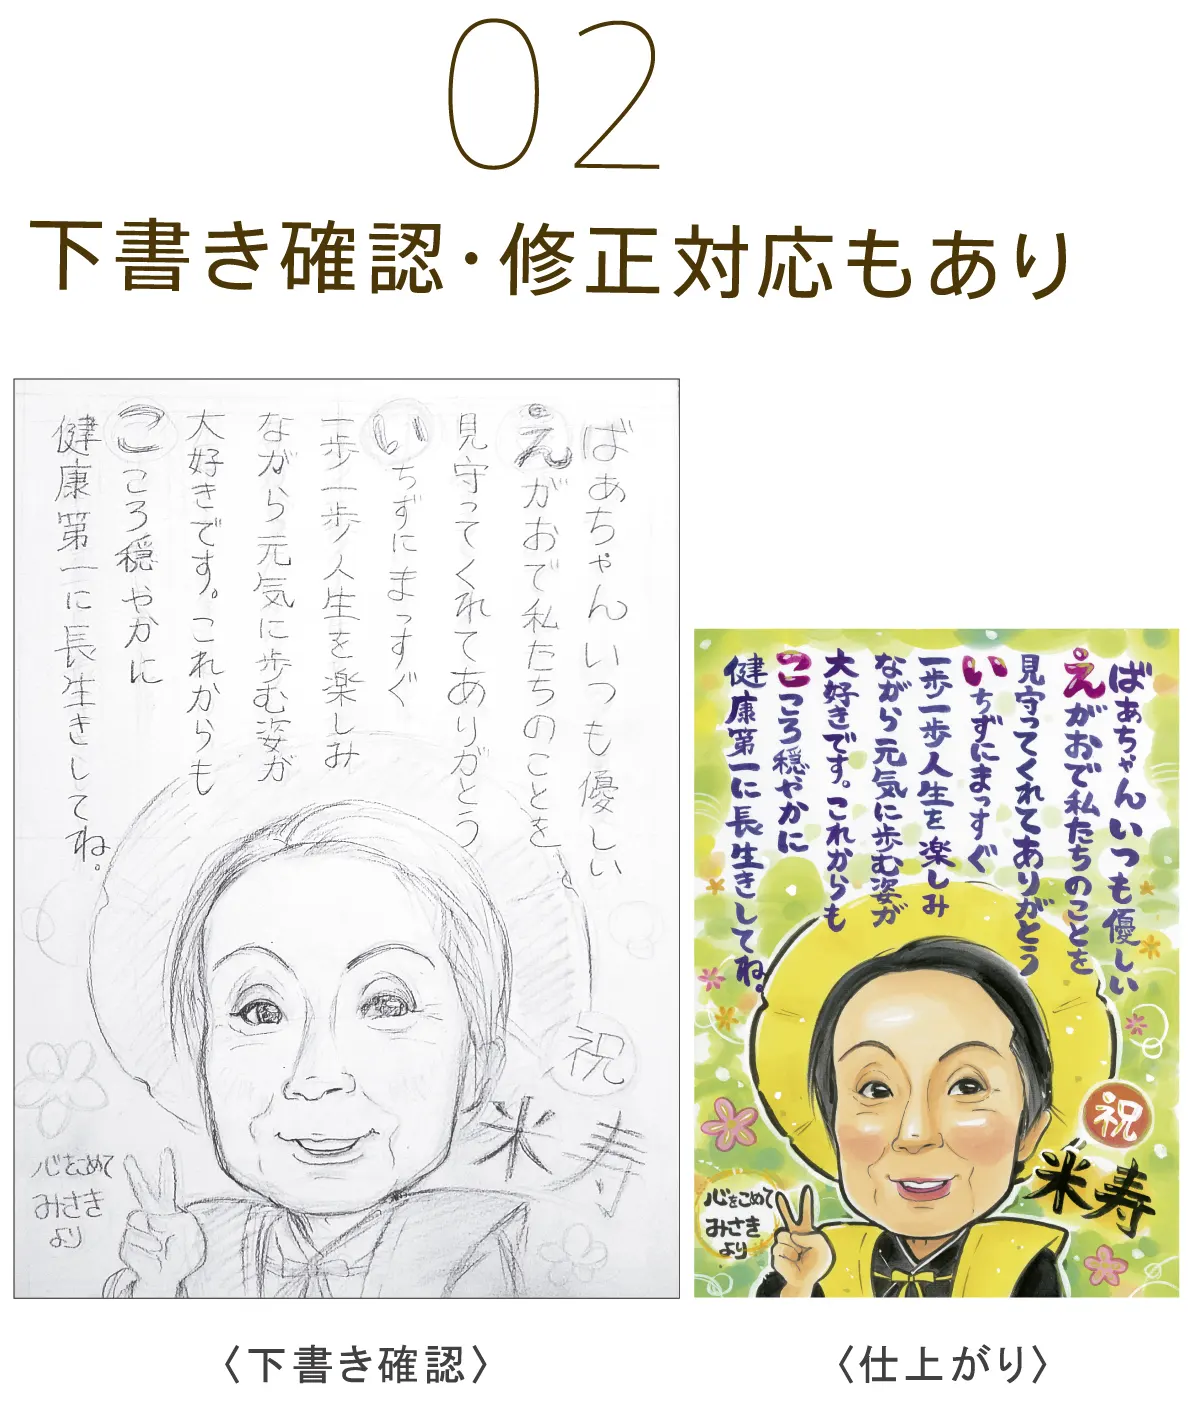 02
下書き確認・修正対応もあり
ばぁちゃんいつも優しい
えがおで私たちのことを
見守ってくれてありがとう
いちずにまっすぐ
一歩一歩人生を楽しみ
ながら元気に歩む姿が
大好きです。これからも
こころ穏やかに
健康第一に長生きしてね。
祝
米寿
心をこめて
みさき
より
〈下書き確認〉
ばぁちゃんいつも優しい
えがおで私たちのことを
見守ってくれてありがとう
いちずにまっすぐ
一歩一歩人生を楽しみ
ながら元気に歩む姿が
大好きです。これからも
こころ穏やかに
健康第一に長生きしてね。
祝
米寿
心をこめて
みさき
より
〈仕上がり〉